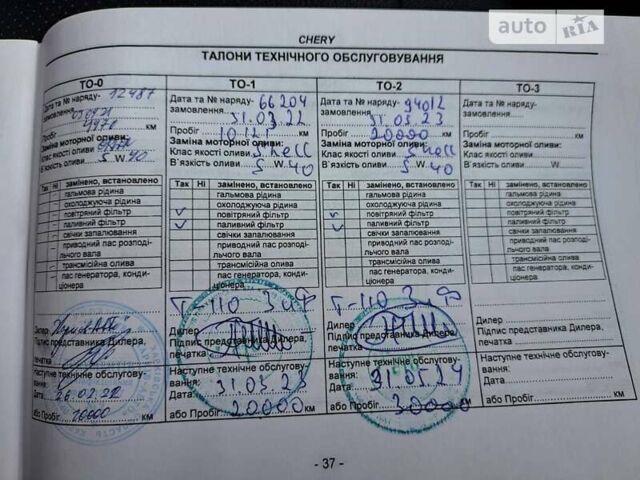 auto RIA
CHERY
ТАЛОНИ ТЕХНІЧНОГО ОБСЛУГОВУВАННЯ
ТО-0
Дата та № наряду- 12487
замовлення
км
Заміна моторної оливи:
Клас якості оливи
В`язкість оливи 5 W 40
Так Ні замінено, встановлено
гальмова рідина
охолоджуюча рідина
повітряний фільтр
паливний фільтр
свічки запалювання
приводний пас розподі-
льного вала
трансмісійна олива
пас генератора, конди-
ціонера
Дилер
Підпис представника Дилера,
печатка
Наступне технічне обслугову-
вання:
Дата:
або Пробіг 10000 км
ТО-1
Дата та № наряду- 66204
замовлення 31.03.22
Пробіг 10121 км
Заміна моторної оливи:
Клас якості оливи Shell
В`язкість оливи 5 W 40
Так Ні замінено, встановлено
гальмова рідина
охолоджуюча рідина
повітряний фільтр
паливний фільтр
свічки запалювання
приводний пас розподі-
льного вала
трансмісійна олива
пас генератора, конди-
ціонера
Дилер
Підпис представника Дилера,
печатка
Наступне технічне обслугову-
вання:
Дата: 31.03.23
або Пробіг 20000 км
ТО-2
Дата та № наряду- 94012
замовлення 31.03.23
Пробіг 20000 км
Заміна моторної оливи:
Клас якості оливи Shell
В`язкість оливи 5 W 40
Так Ні замінено, встановлено
гальмова рідина
охолоджуюча рідина
повітряний фільтр
паливний фільтр
свічки запалювання
приводний пас розподі-
льного вала
трансмісійна олива
пас генератора, конди-
ціонера
Дилер
Підпис представника Дилера,
печатка
Наступне технічне обслугову-
вання:
Дата:
або Пробіг 30000 км
ТО-3
Дата та № наряду-
замовлення
Пробіг км
Заміна моторної оливи:
Клас якості оливи
В`язкість оливи W
Так Ні замінено, встановлено
гальмова рідина
охолоджуюча рідина
повітряний фільтр
паливний фільтр
свічки запалювання
приводний пас розподі-
льного вала
трансмісійна олива
пас генератора, конди-
ціонера
Дилер
Підпис представника Дилера,
печатка
Наступне технічне обслугову-
вання:
Дата:
або Пробіг км
- 37 -